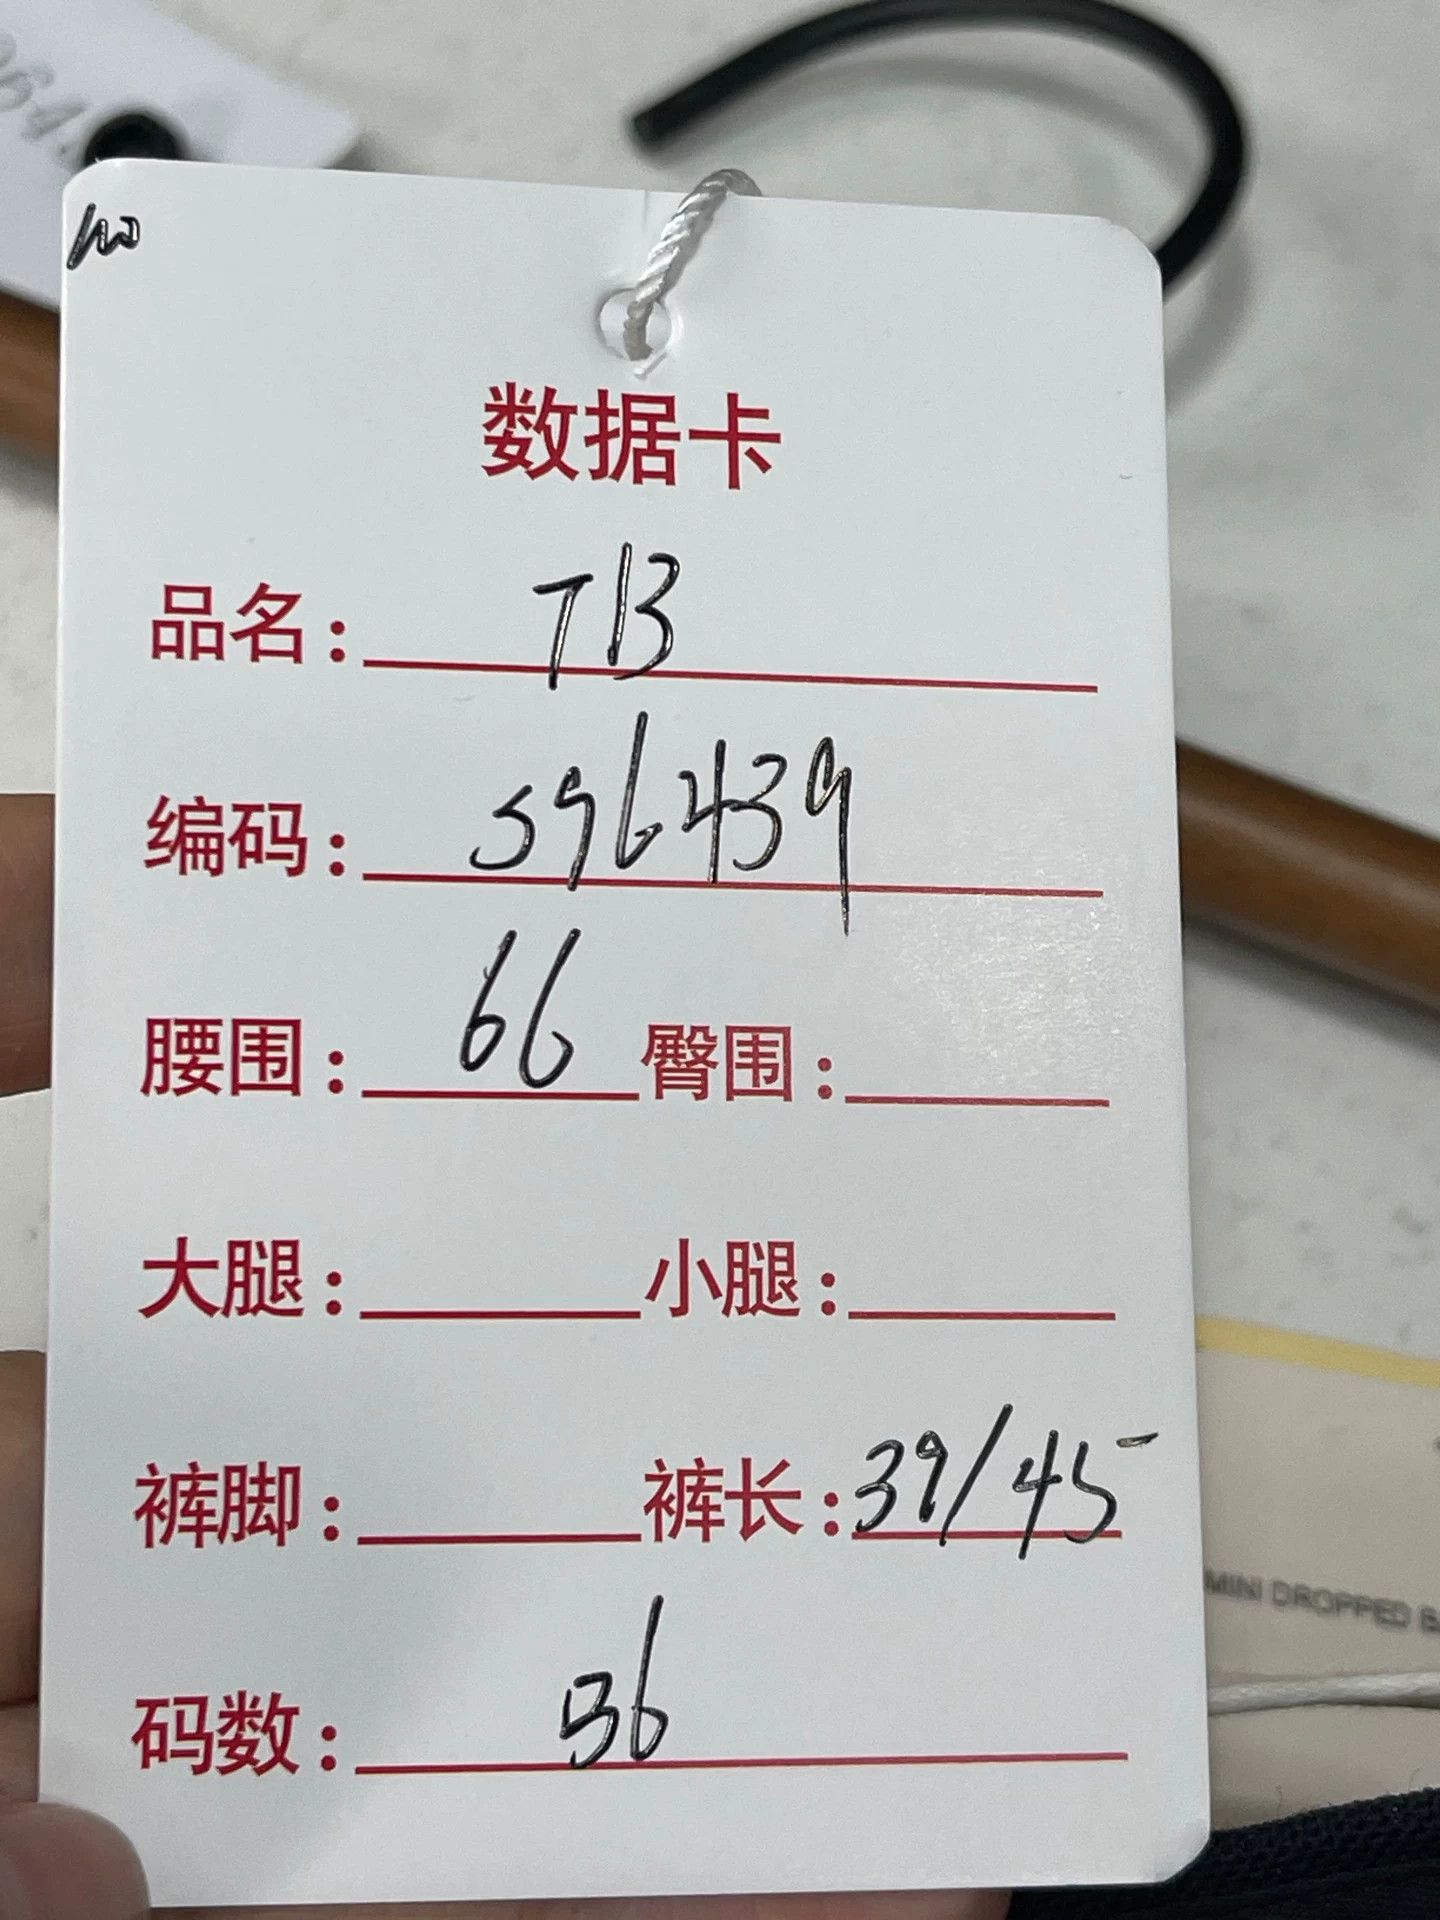 数据卡
品名： TB
编码： S96439
腰围： 66 臀围：
大腿： 小腿：
裤脚： 裤长： 39/45
码数： 36
MINI DROPPED B